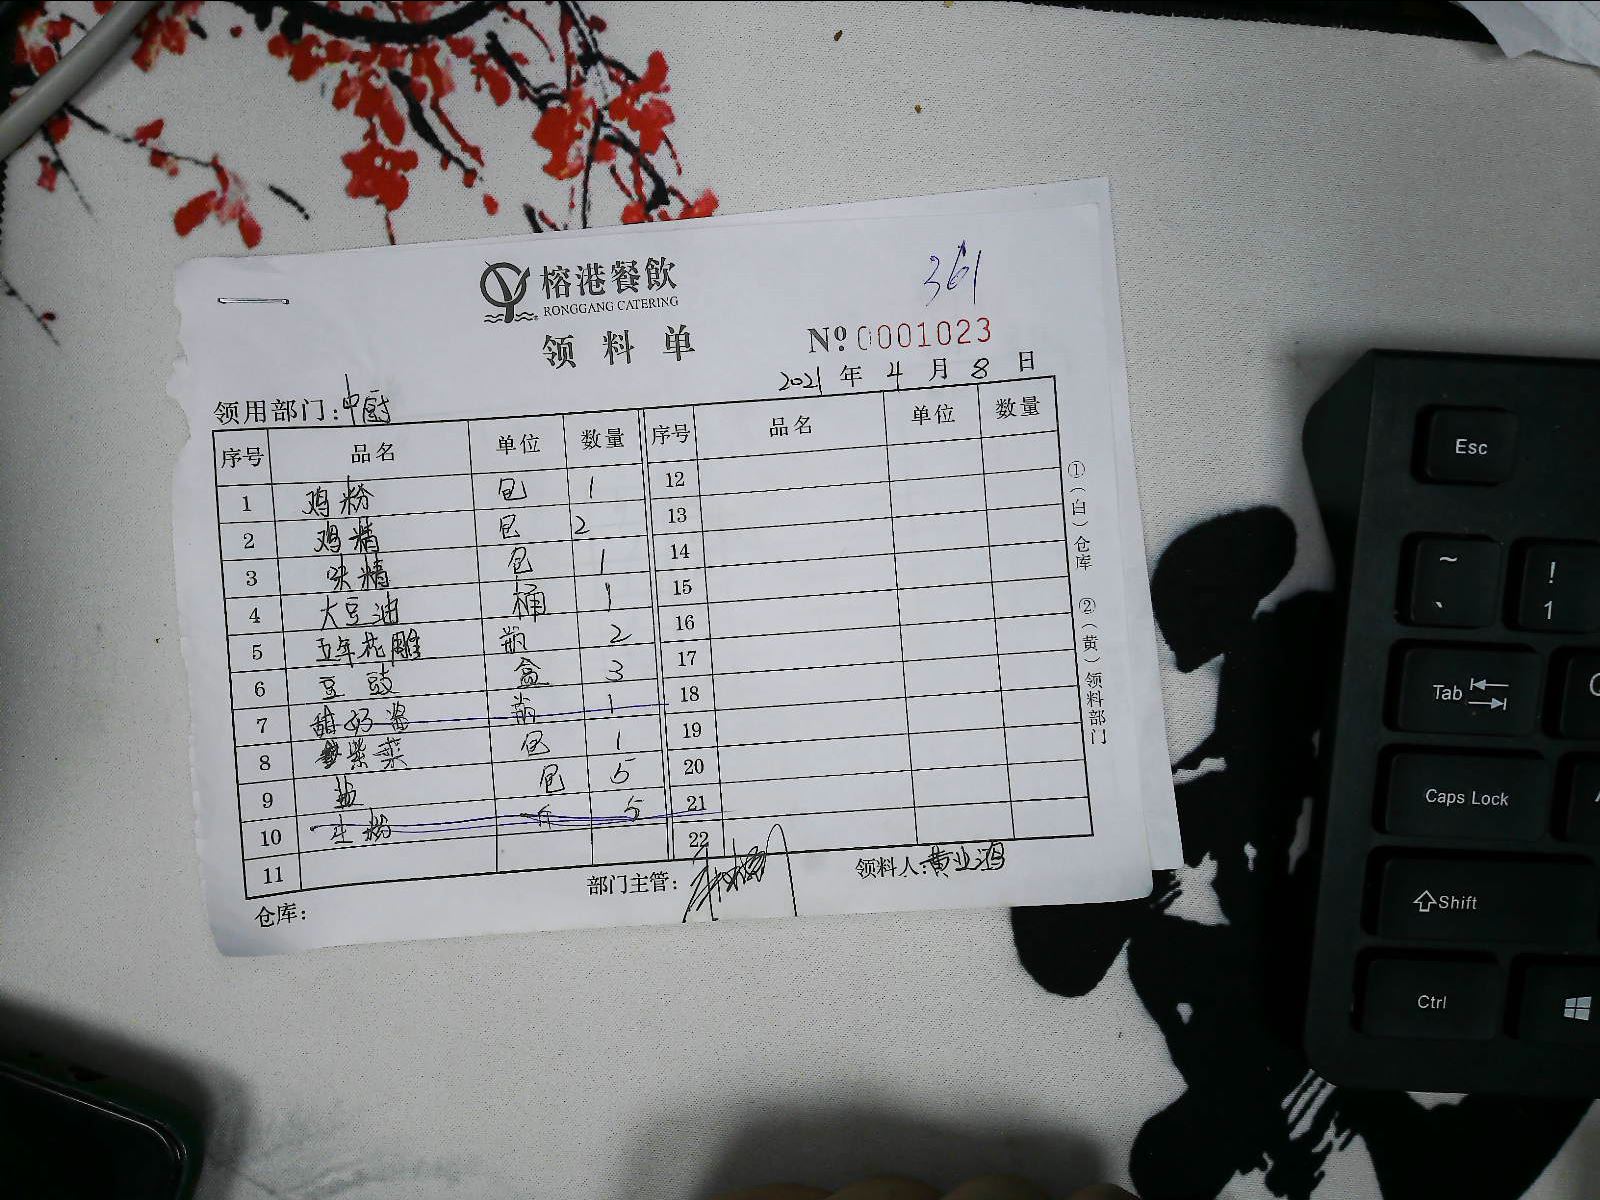 榕港餐飲
RONGGANG CATERING
361
领料单
Nº 0001023
2021 年 4 月 8 日
领用部门:中厨
序号 品名 单位 数量 序号 品名 单位 数量
1 鸡粉 包 1 12
2 鸡精 包 2 13
3 味精 包 1 14
4 大豆油 桶 1 15
5 五年花雕 瓶 2 16
6 豆豉 盒 3 17
7 甜 酱 瓶 1 18
8 紫菜 包 1 19
9 盐 包 5 20
10 生粉 斤 5 21
11 22
仓库: 部门主管: 领料人:黄业鸿
①(白)仓库 ②(黄)领料部门
Esc
~ `
! 1
Tab
Caps Lock
Shift
Ctrl